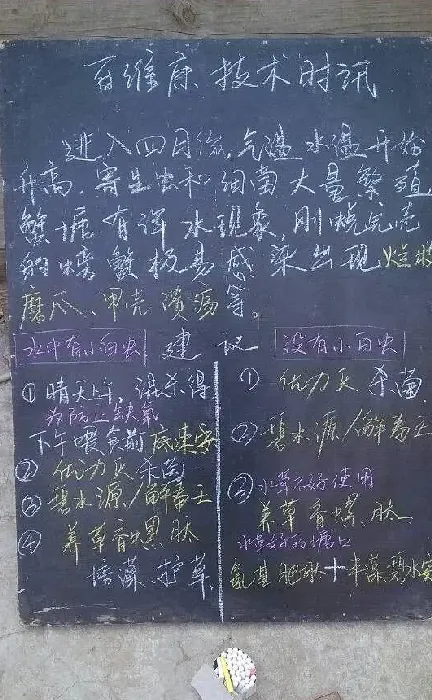 百维康技术时讯
进入四月份,气温水温开始
升高,寄生虫和细菌大量繁殖
蟹塘有浑水现象,刚烧完壳
的螃蟹极易感染出现烂肢
腐爪、甲壳溃疡等。
建议
水中有小白虫
① 晴天上午,混杀得
为防止缺氧
下午喂食前底速安
② 优力氏杀菌
③ 碧水源/解毒王
④ 养草香螺肽
培藻、护草
没有小白虫
① 优力氏杀菌
② 碧水源/解毒王
③ 水草不好使用
养草香螺肽
水草好的塘口
氨基肥水+丰藻碧水安